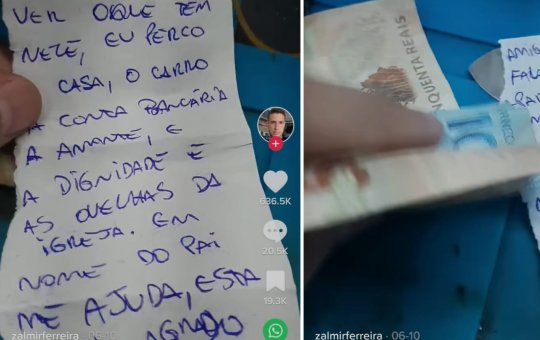 VER OQUE TEM
NETE, EU PERCO
CASA, O CARRO
A CONTA BANCÁRIA
A AMANTE, E
A DIGNIDADE E
AS OVELHAS DA
IGREJA. EM
NOME DO PAI
ME AJUDA, ESTA
636.5K
20.5K
19.3K
zalmirferreira · 06-10
QUENTA REAIS
AMIG
FALO
zalmirferreira · 06-10